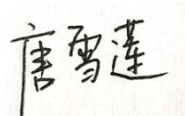 唐雪莲